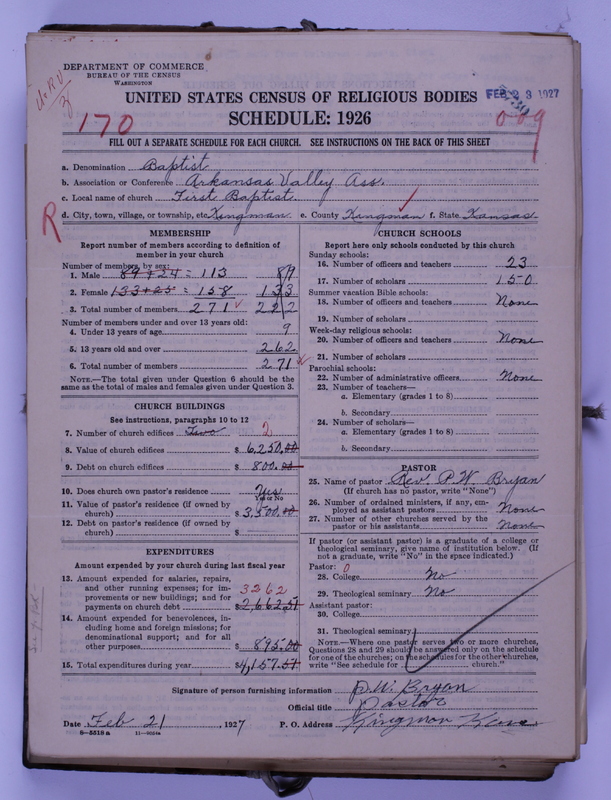 DEPARTMENT OF COMMERCE
BUREAU OF THE CENSUS
WASHINGTON
FEB 23 1927
UNITED STATES CENSUS OF RELIGIOUS BODIES
SCHEDULE: 1926
170
009
FILL OUT A SEPARATE SCHEDULE FOR EACH CHURCH. SEE INSTRUCTIONS ON THE BACK OF THIS SHEET
a. Denomination Baptist
b. Association or Conference Arkansas Valley Ass.
c. Local name of church First Baptist
R
d. City, town, village, or township, etc. Kingman e. County Kingman f. State Kansas
MEMBERSHIP
Report number of members according to definition of
member in your church
Number of members by sex:
1. Male 89 + 24 = 113 89
2. Female 133 + 25 = 158 133
3. Total number of members 271 222
Number of members under and over 13 years old:
4. Under 13 years of age 9
5. 13 years old and over 262
6. Total number of members 271
NOTE.—The total given under Question 6 should be the
same as the total of males and females given under Question 3.
CHURCH BUILDINGS
See instructions, paragraphs 10 to 12
7. Number of church edifices Two 2
8. Value of church edifices $ 6,250.00
9. Debt on church edifices $ 800.00
10. Does church own pastor's residence Yes
Yes or No
11. Value of pastor's residence (if owned by
church) $ 3,500.00
12. Debt on pastor's residence (if owned by
church) $
EXPENDITURES
Amount expended by your church during last fiscal year
13. Amount expended for salaries, repairs,
and other running expenses; for im-
provements or new buildings; and for
payments on church debt 3262 $ 2,662.51
14. Amount expended for benevolences, in-
cluding home and foreign missions; for
denominational support; and for all
other purposes $ 895.00
15. Total expenditures during year $4,157.51
CHURCH SCHOOLS
Report here only schools conducted by this church
Sunday schools:
16. Number of officers and teachers 23
17. Number of scholars 150
Summer vacation Bible schools:
18. Number of officers and teachers None
19. Number of scholars
Week-day religious schools:
20. Number of officers and teachers None
21. Number of scholars
Parochial schools:
22. Number of administrative officers None
23. Number of teachers—
a. Elementary (grades 1 to 8)
b. Secondary
24. Number of scholars—
a. Elementary (grades 1 to 8)
b. Secondary
PASTOR
25. Name of pastor Rev. P.W. Bryan
(If church has no pastor, write "None")
26. Number of ordained ministers, if any, em-
ployed as assistant pastors None
27. Number of other churches served by the
pastor or his assistants None
If pastor (or assistant pastor) is a graduate of a college or
theological seminary, give name of institution below. (If
not a graduate, write "No" in the space indicated.)
Pastor: 0
28. College No
29. Theological seminary No
Assistant pastor:
30. College
31. Theological seminary
NOTE.—Where one pastor serves two or more churches,
Questions 28 and 29 should be answered only on the schedule
for one of the churches; on the schedules for the other churches,
write "See schedule for church."
Signature of person furnishing information P.W. Bryan
Official title Pastor
Date Feb 21, 1927 P. O. Address Kingman Kans
8—5518 a